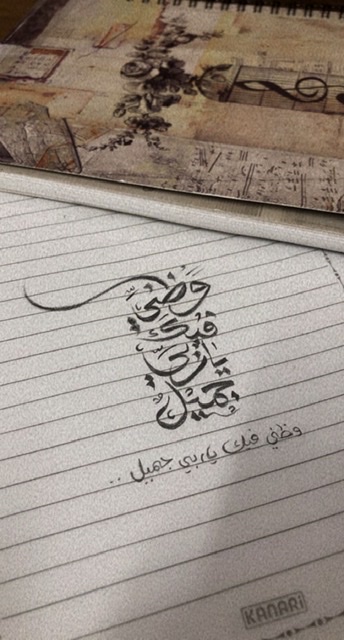 وضني
فيك
يا ربي
جميل
وظني فيك يا ربي جميل ..
KANARi